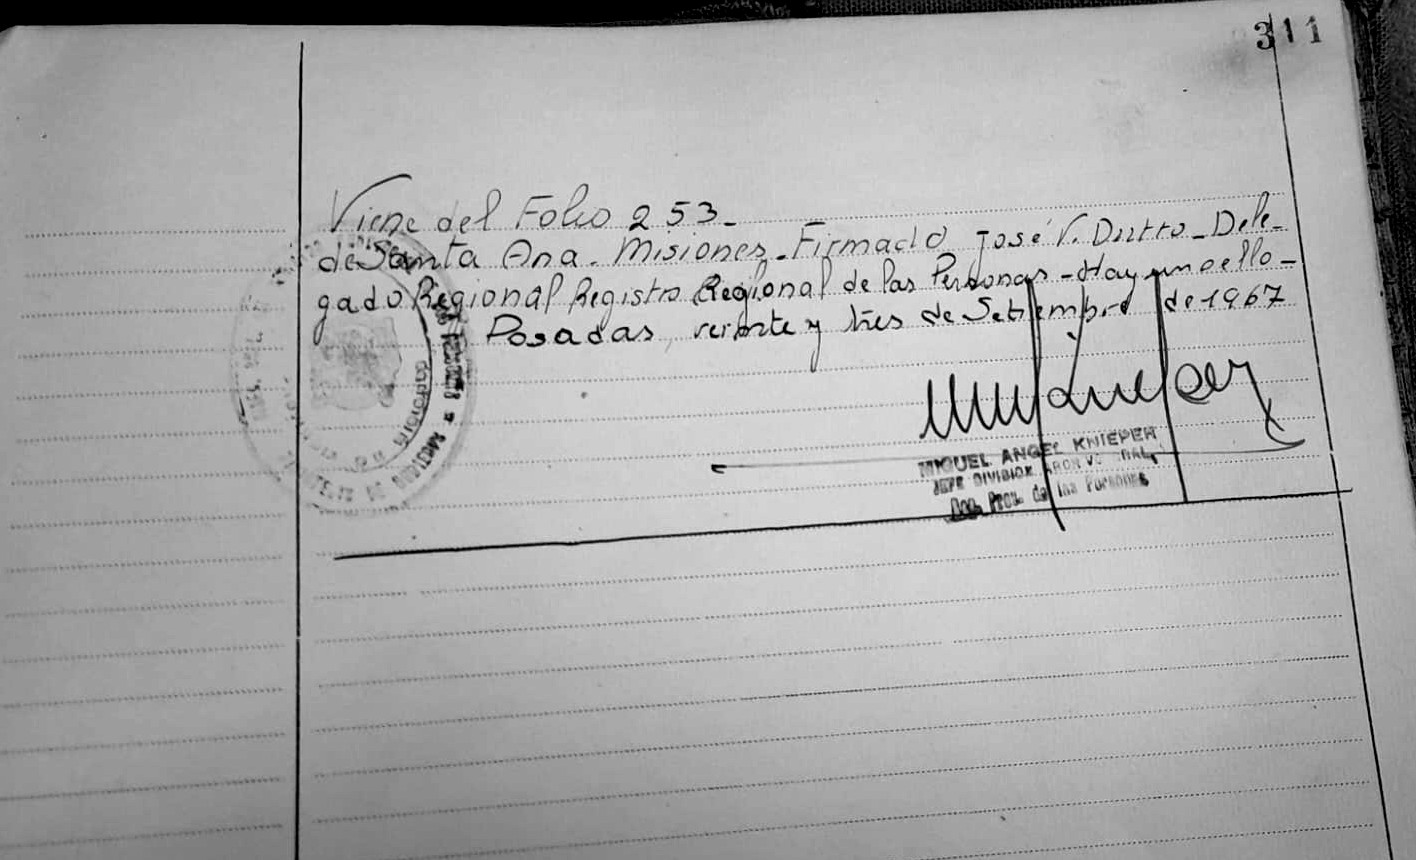 311
Viene del Folio 253_
de Santa Ana. Misiones. Firmado José V. Dutto_Dele-
gado Regional Registro Regional de las Personas - Hay un sello -
Posadas, veinte y tres de Setiembre de 1967
MIGUEL ANGEL KNIEPER
JEFE DIVISION
Prov. de las Personas